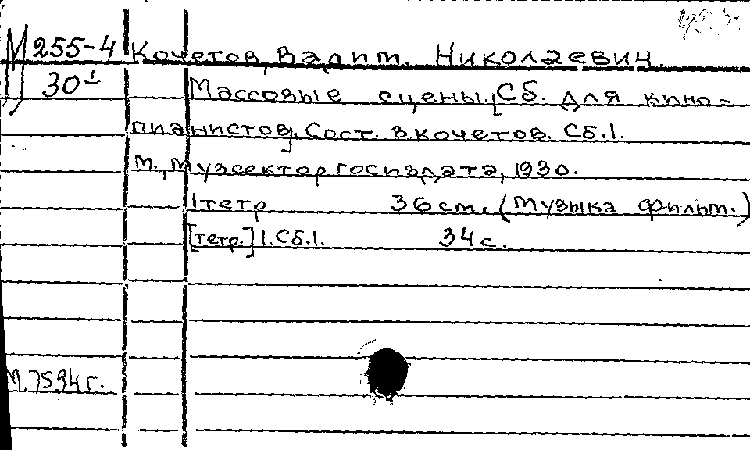 М 255-4 Кочетов, Вадим. Николаевич.
30¹ Массовые сцены. [Сб. для кино-
пианистов]. Сост. В. Кочетов. Сб. 1.
М., Музсектор госиздата, 1930.
1 тетр 36 cm. (Музыка фильм.)
[тетр.] 1. Сб. 1. 34 с.
М. 7594 г.